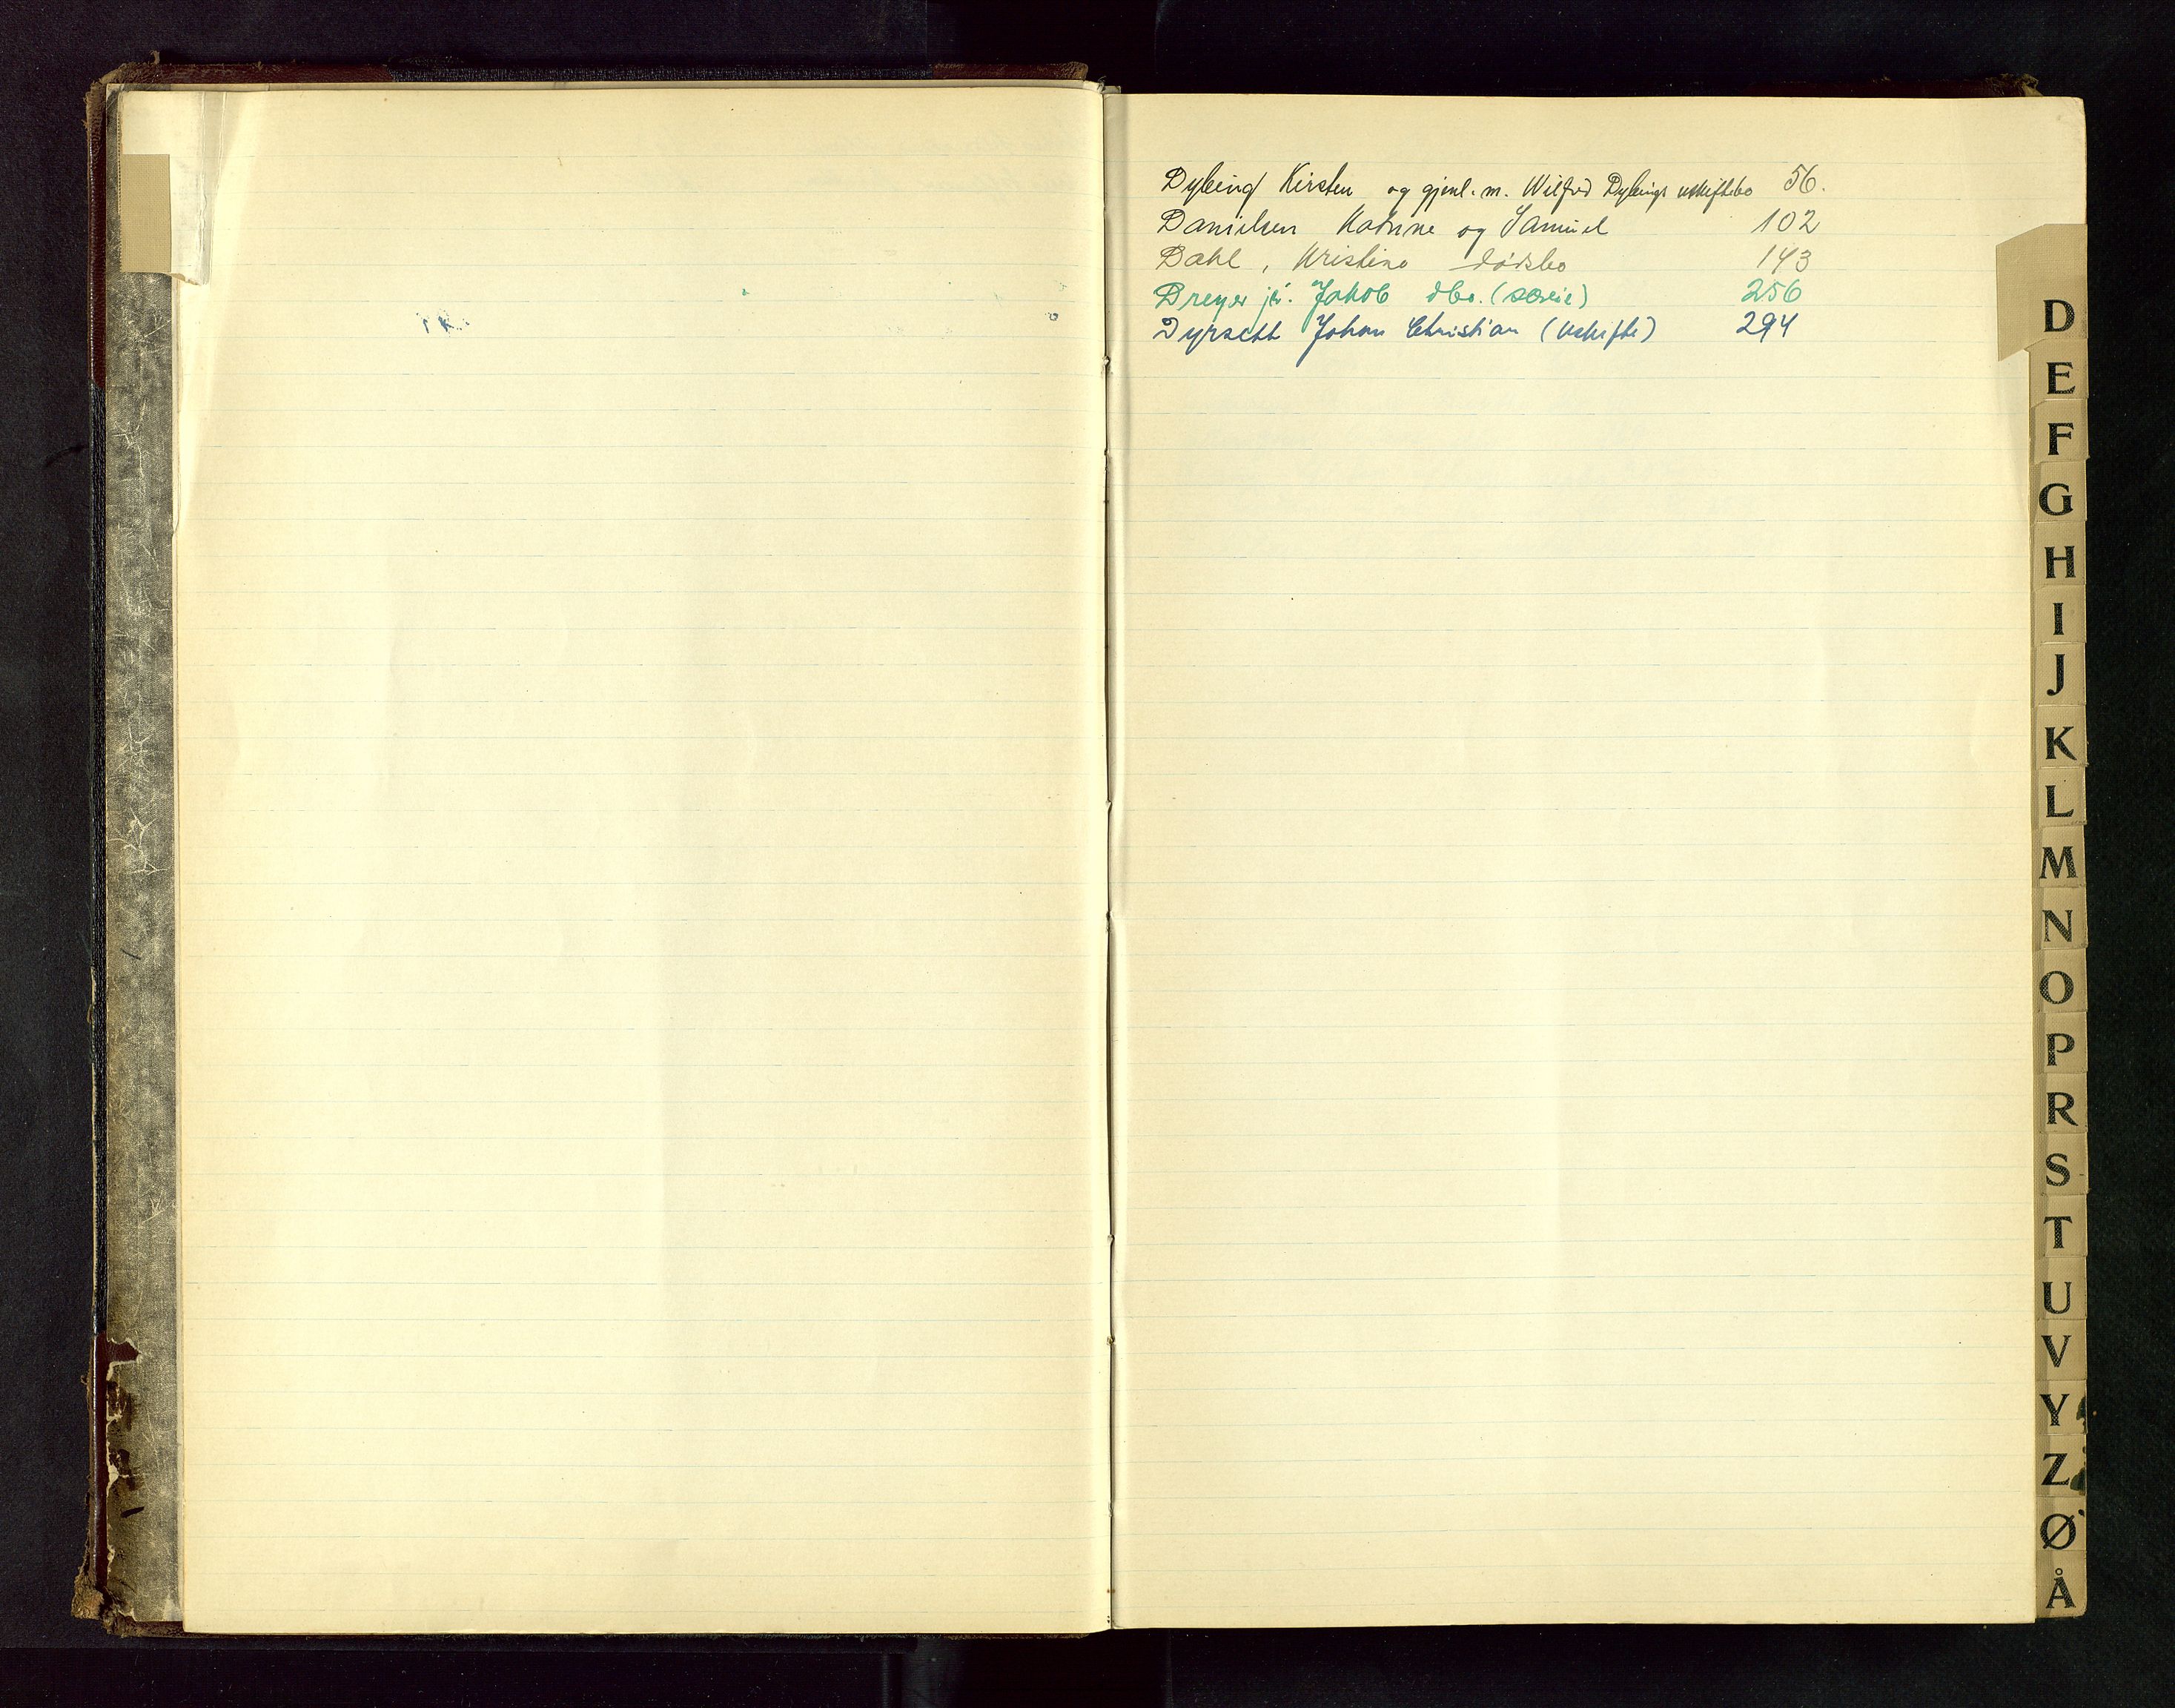 Dybing Kirsten og gjenl. m. Wilfred Dybings uskiftebo 56.
Danielsen Katrine og Samuel 102
Dahl, Kristine dødsbo 143
Dreyer jr. Jakob dbo. (særeie) 256
Dyrseth Johan Christian (uskifte) 294
D
E
F
G
H
I
J
K
L
M
N
O
P
R
S
T
U
V
Y
Z
Ø
Å